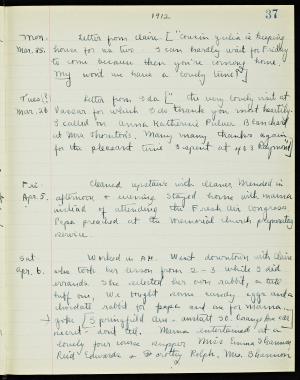 1912
37
Mon. Letter from Claire ["Cousin Julia is keeping
Mar. 25. house for us two. I can hardly wait for Friday
to come because then you're coming home.
My word we have a lovely time"]
Tues. Letter from Ida [" the very lovely visit at
Mar. 26 Vassar for which I do thank you most heartily
I called on Anna Katharine Palmer Blanchard
at Mrs Thornton's. Many many thanks again
for the pleasant time I spent at 403 Raymond"]
Fri Cleaned upstairs with cleaner. Mended in
Apr. 5. afternoon & evening. Stayed home with mama
instead of attending the Fresh Air Congress
Papa preached at the Memorial Church preparatory
service.
Sat Worked in A.M. Went downtown with Claire
Apr. 6. who took her lesson from 2-3 while I did
errands. She selected her own rabbit, a little
buff one. We bought some candy eggs and a
chocolate rabbit for papa and one for mama
[Springfield Ave. and
secret - don't tell. Mama entertained at a
lovely four course supper Miss Emma Shannon,
Reid Edwards & Dorothy Rolph. Mrs. Shannon